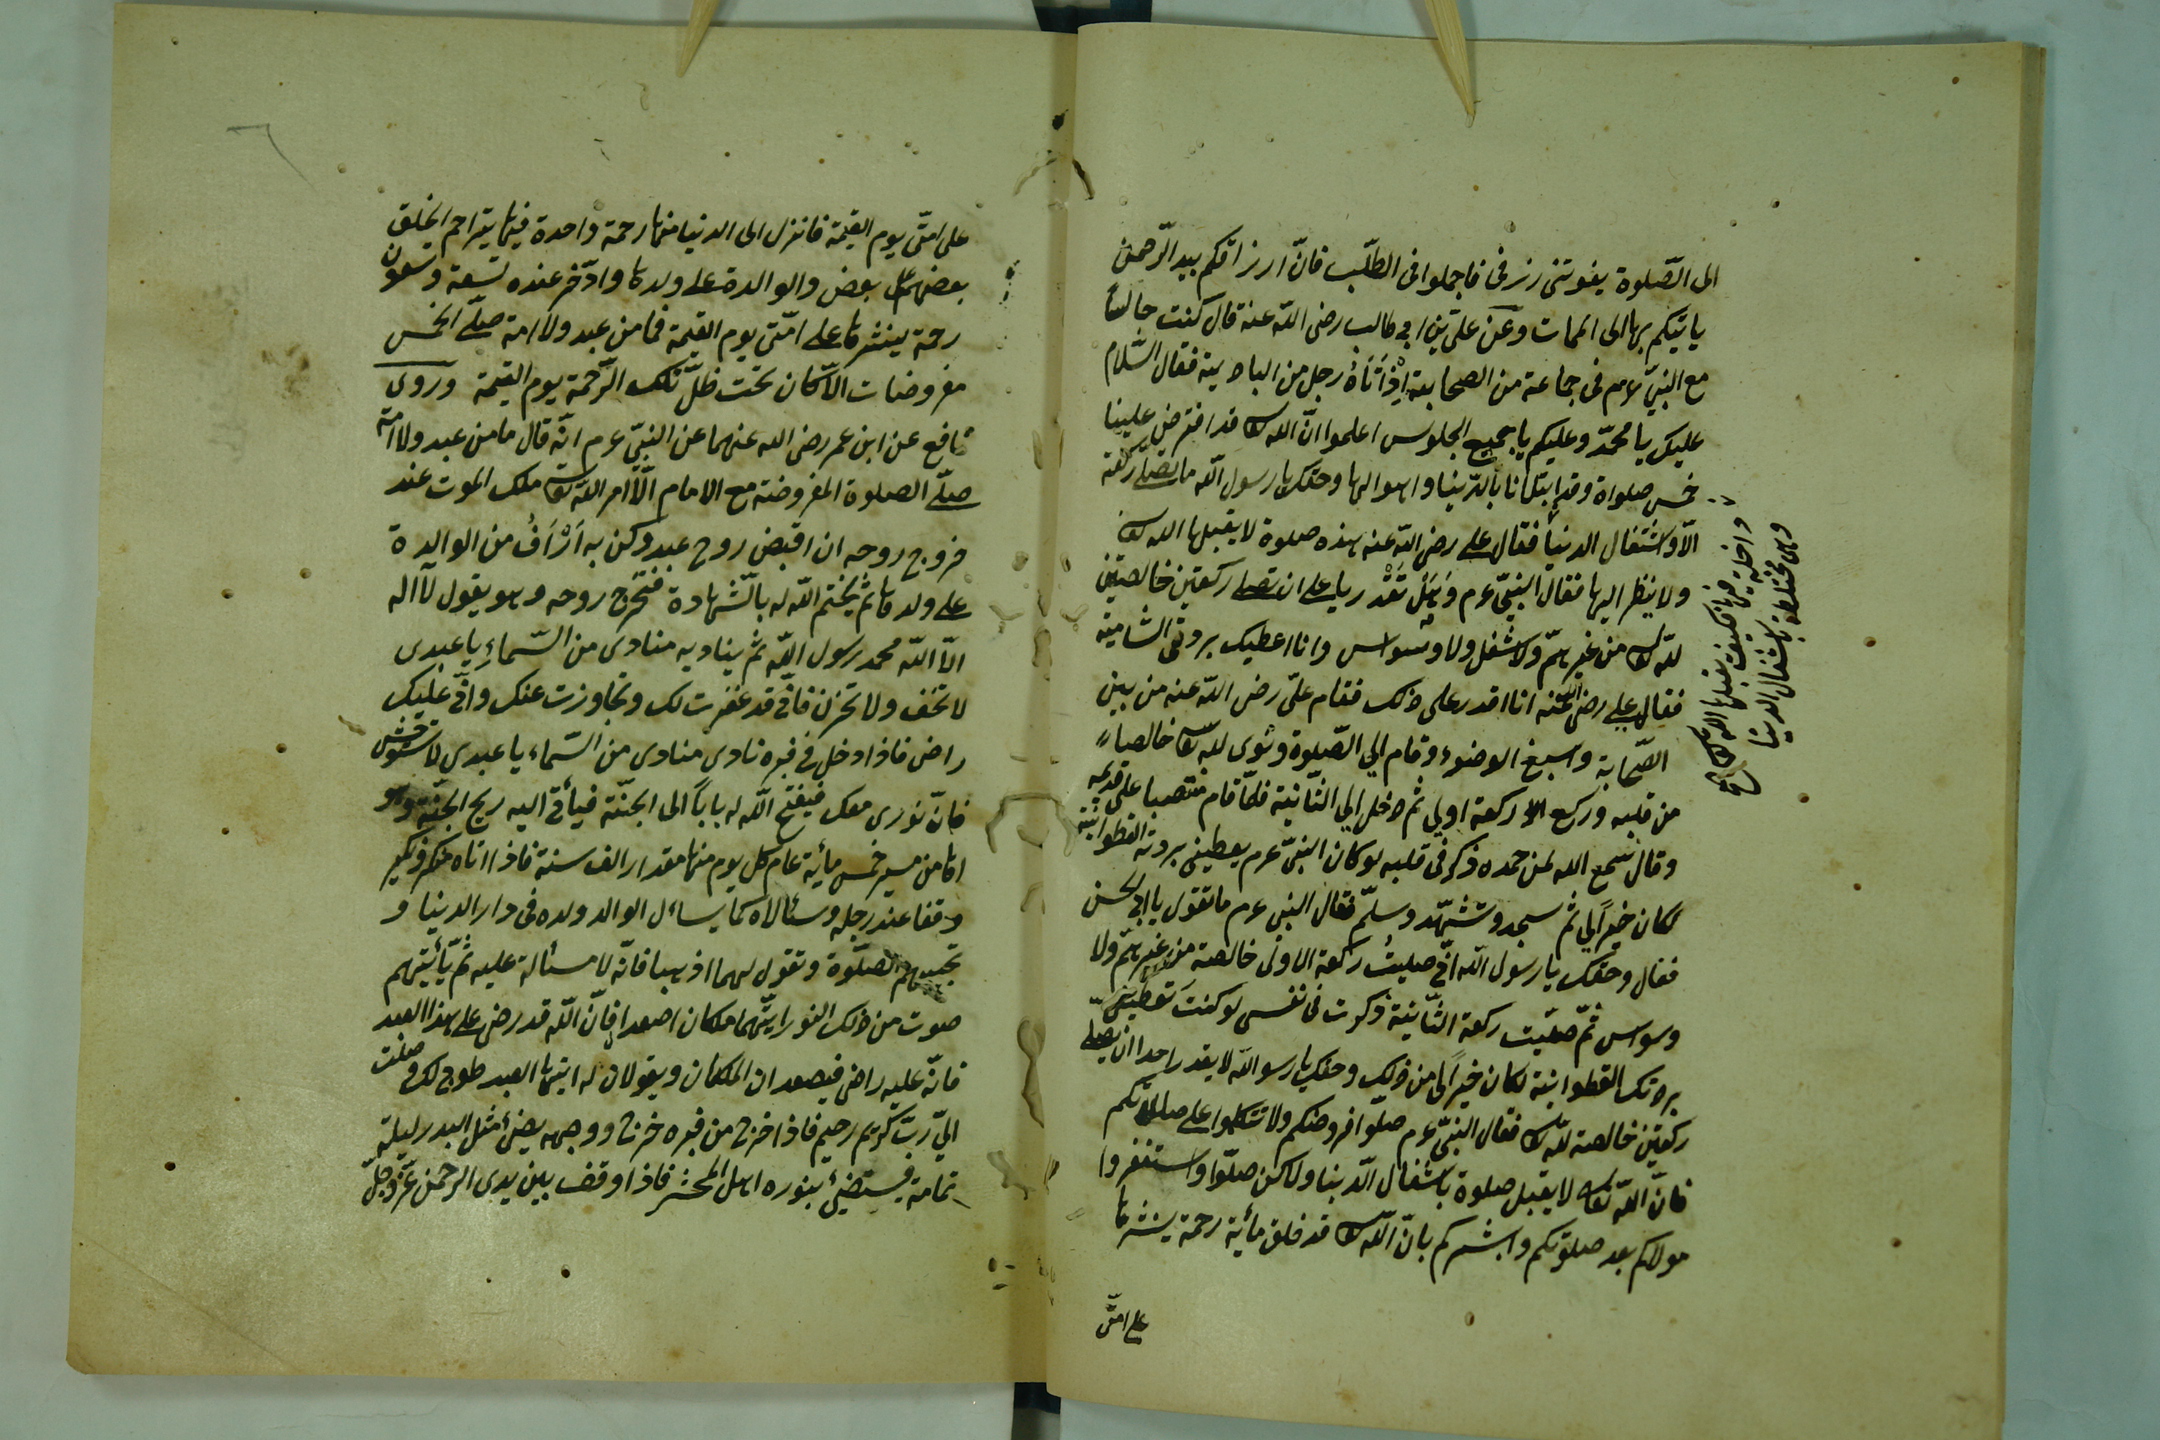 الى الصّلوة يفوتنى رزقى فاجملوا فى الطّلب فانّ ارزاقكم بيد الرّحمن
ياتيكم بها الى الممات وعن علىّ بن ابى طالب رضى اللّه عنه قال كنت جالسًا
مع النبىّ عم فى جماعة من الصحابة اِذْ اَتَاهُ رجل من البادية فقال السّلام
عليك يا محمّد وعليكم يا جميع الجلوس اعلموا انّ اللّه تعا قد افترض علينا
خمس صلواة وقد ابتلانا بالدّنيا واهوالها وحقك يا رسول اللّه ما نصلّى ركعة
الّا واشتغال الدنيا فقال على رضى اللّه عنه هذه صلوة لا يقبلها اللّه تعا
ولا ينظر اليها فقال النبىّ عم وَهَلْ تَقْدر يا على ان تصلى ركعتين خالصتين
للّه تعا من غير همّ ولا شغل ولا وسواس وانا اعطيك بردتى الشامية
فقال على رضى اللّه عنه انا اقدر على ذلك فقام علىّ رضى اللّه عنه من بين
الصّحابة واسبغ الوضوء وقام الى الصّلوة ونوى للّه تعا خالصاء
من قلبه وركع ركعة اولى ثم دخل الى الثّانية فلمّا قام منتصبا على قدميه
وقال سمع اللّه لمن حمده ذكر فى قلبه لو كان النبىّ عم يعطينى بردته القطوانية
لكان خيرًا لى ثم سجد وتشهّد وسلّم فقال النبى عم ما تقول يا ابى الحسن
فقال وحقك يا رسول اللّه انّى صليتُ ركعة الاولى خالصة من غير همّ ولا
وسواس ثمّ صلّيت ركعة الثّانية ذكرت فى نفسى لو كنتَ تعطينى
بردتك القطوانية لكان خيرًا لى من ذلك وحقك يا رسو اللّه لا يقدر احدا ان يصلى
ركعتين خالصة للّه تعا فقال النبىّ عم صلّوا فروضكم ولا تتكلوا على صلاتكم
فانّ اللّه تعا لا يقبل صلوة باشغال الدّنيا ولاكن صلّوا واستغفروا
مولاكم بعد صلوتكم وابشركم بانّ اللّه تعا قد خلق مأية رحمة ينشرها
على امتى
واخلية فيها فكيف يقبلها اللّه تعا
وهى مختلطة باشغال الدنيا
على امتّى يوم القيمة فانزل الى الدنيا منها رحمة واحدة فيها يتراحم الخلق
بعضهم على بعض والوالدة على ولدها وادّخر عنده تسعة وتسعون
رحمة ينشرها على امّتى يوم القيمة فما من عبد ولا امة صلّى الخمس
مفروضات الّا كان تحت ظلّ تلك الرّحمة يوم القيمة وروى
نافع عن ابن عمر رضى اللّه عنهما عن النبىّ عم انّه قال ما من عبد ولا امة
صلّى الصلوة المفروضة مع الامام الّا امر اللّه تعا ملك الموت عند
خروج روحه ان اقبض روح عبد وكن به اَرْاَفُ من الوالدة
على ولدها ثم يختم اللّه له بالشّهادة فتخرج روحه وهو يقول لآ اله
الّا اللّه محمد رسول اللّه ثم يناديه منادى من السّماءِ يا عبدى
لا تخف ولا تحزن فانّى قد غفرت لك وتجاوزت عنك وانّى عليك
راض فاذا دخل فى قبره نادى منادى من السّماء يا عبدى لا تستوحش
فانّ نورى معك فيفتح اللّه له بابًا الى الجنّة فيأتى اليه ريح الجنّة
اتا من مسير خمس مأية عام كل يوم منها مقدار الف سنة فاذا اتاه منكر ونكير
وقفا عند رجله وسئالاه كما يسائل الوالد ولده فى دار الدنيا و
تجيبهم الصلوة وتقول لهما اذهبا فانّه لا مسئالة عليه ثمّ يأتيهم
صوت من ذلك النور ايّتهما ملكان اصعدا فانّ اللّه قد رضى على هذا العبد
فانّه عليه راضى فيصعدان الملكان ويقولان له ايّتها العبد طوبى لك
الىّ ربّ كريم رحيم فاذا خرج من قبره خرج ووجهه يضئ مثل البدر ليلة
تمامة يستضئ بنوره اهل المحشر فاذا وقف بين يدى الرحمن عزّ وجلّ